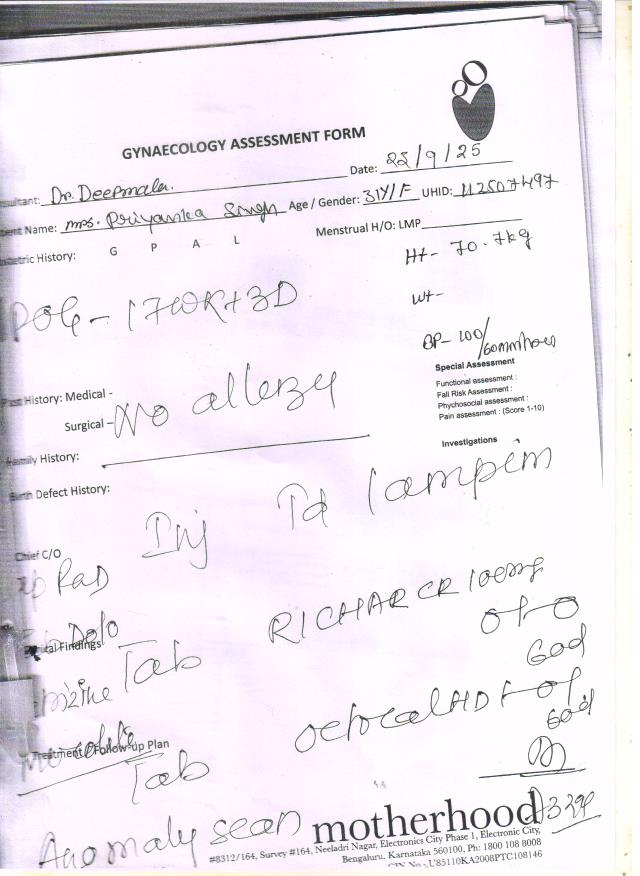 GYNAECOLOGY ASSESSMENT FORM
Date: 22/9/25
sultant: Dr. Deepmala.
ent Name: mrs. Priyanka Singh Age / Gender: 31Y/F UHID: 112507497
etric History: G P A L Menstrual H/O: LMP
Ht- 70.7kg
POG - 17WK+3D
wt-
BP- 100/60mmhg
Special Assessment
Functional assessment :
Fall Risk Assessment :
Phychosocial assessment :
Pain assessment : (Score 1-10)
Past History: Medical -
No allergy
Surgical -
Investigations
Family History:
Birth Defect History:
Inj Td 1 amp im
Chief C/O
Pad
RICHAR CR 100mg
Dolo
al Findings
Tab
0-1-0
60d
mzine
Octocal HD 1-0-1
60d
Treatment / Follow-up Plan
Tab
Anomaly scan
motherhood
#8312/164, Survey #164, Neeladri Nagar, Electronics City Phase 1, Electronic City,
Bengaluru, Karnataka 560100, Ph: 1800 108 8008
CIN No - U85110KA2008PTC108146